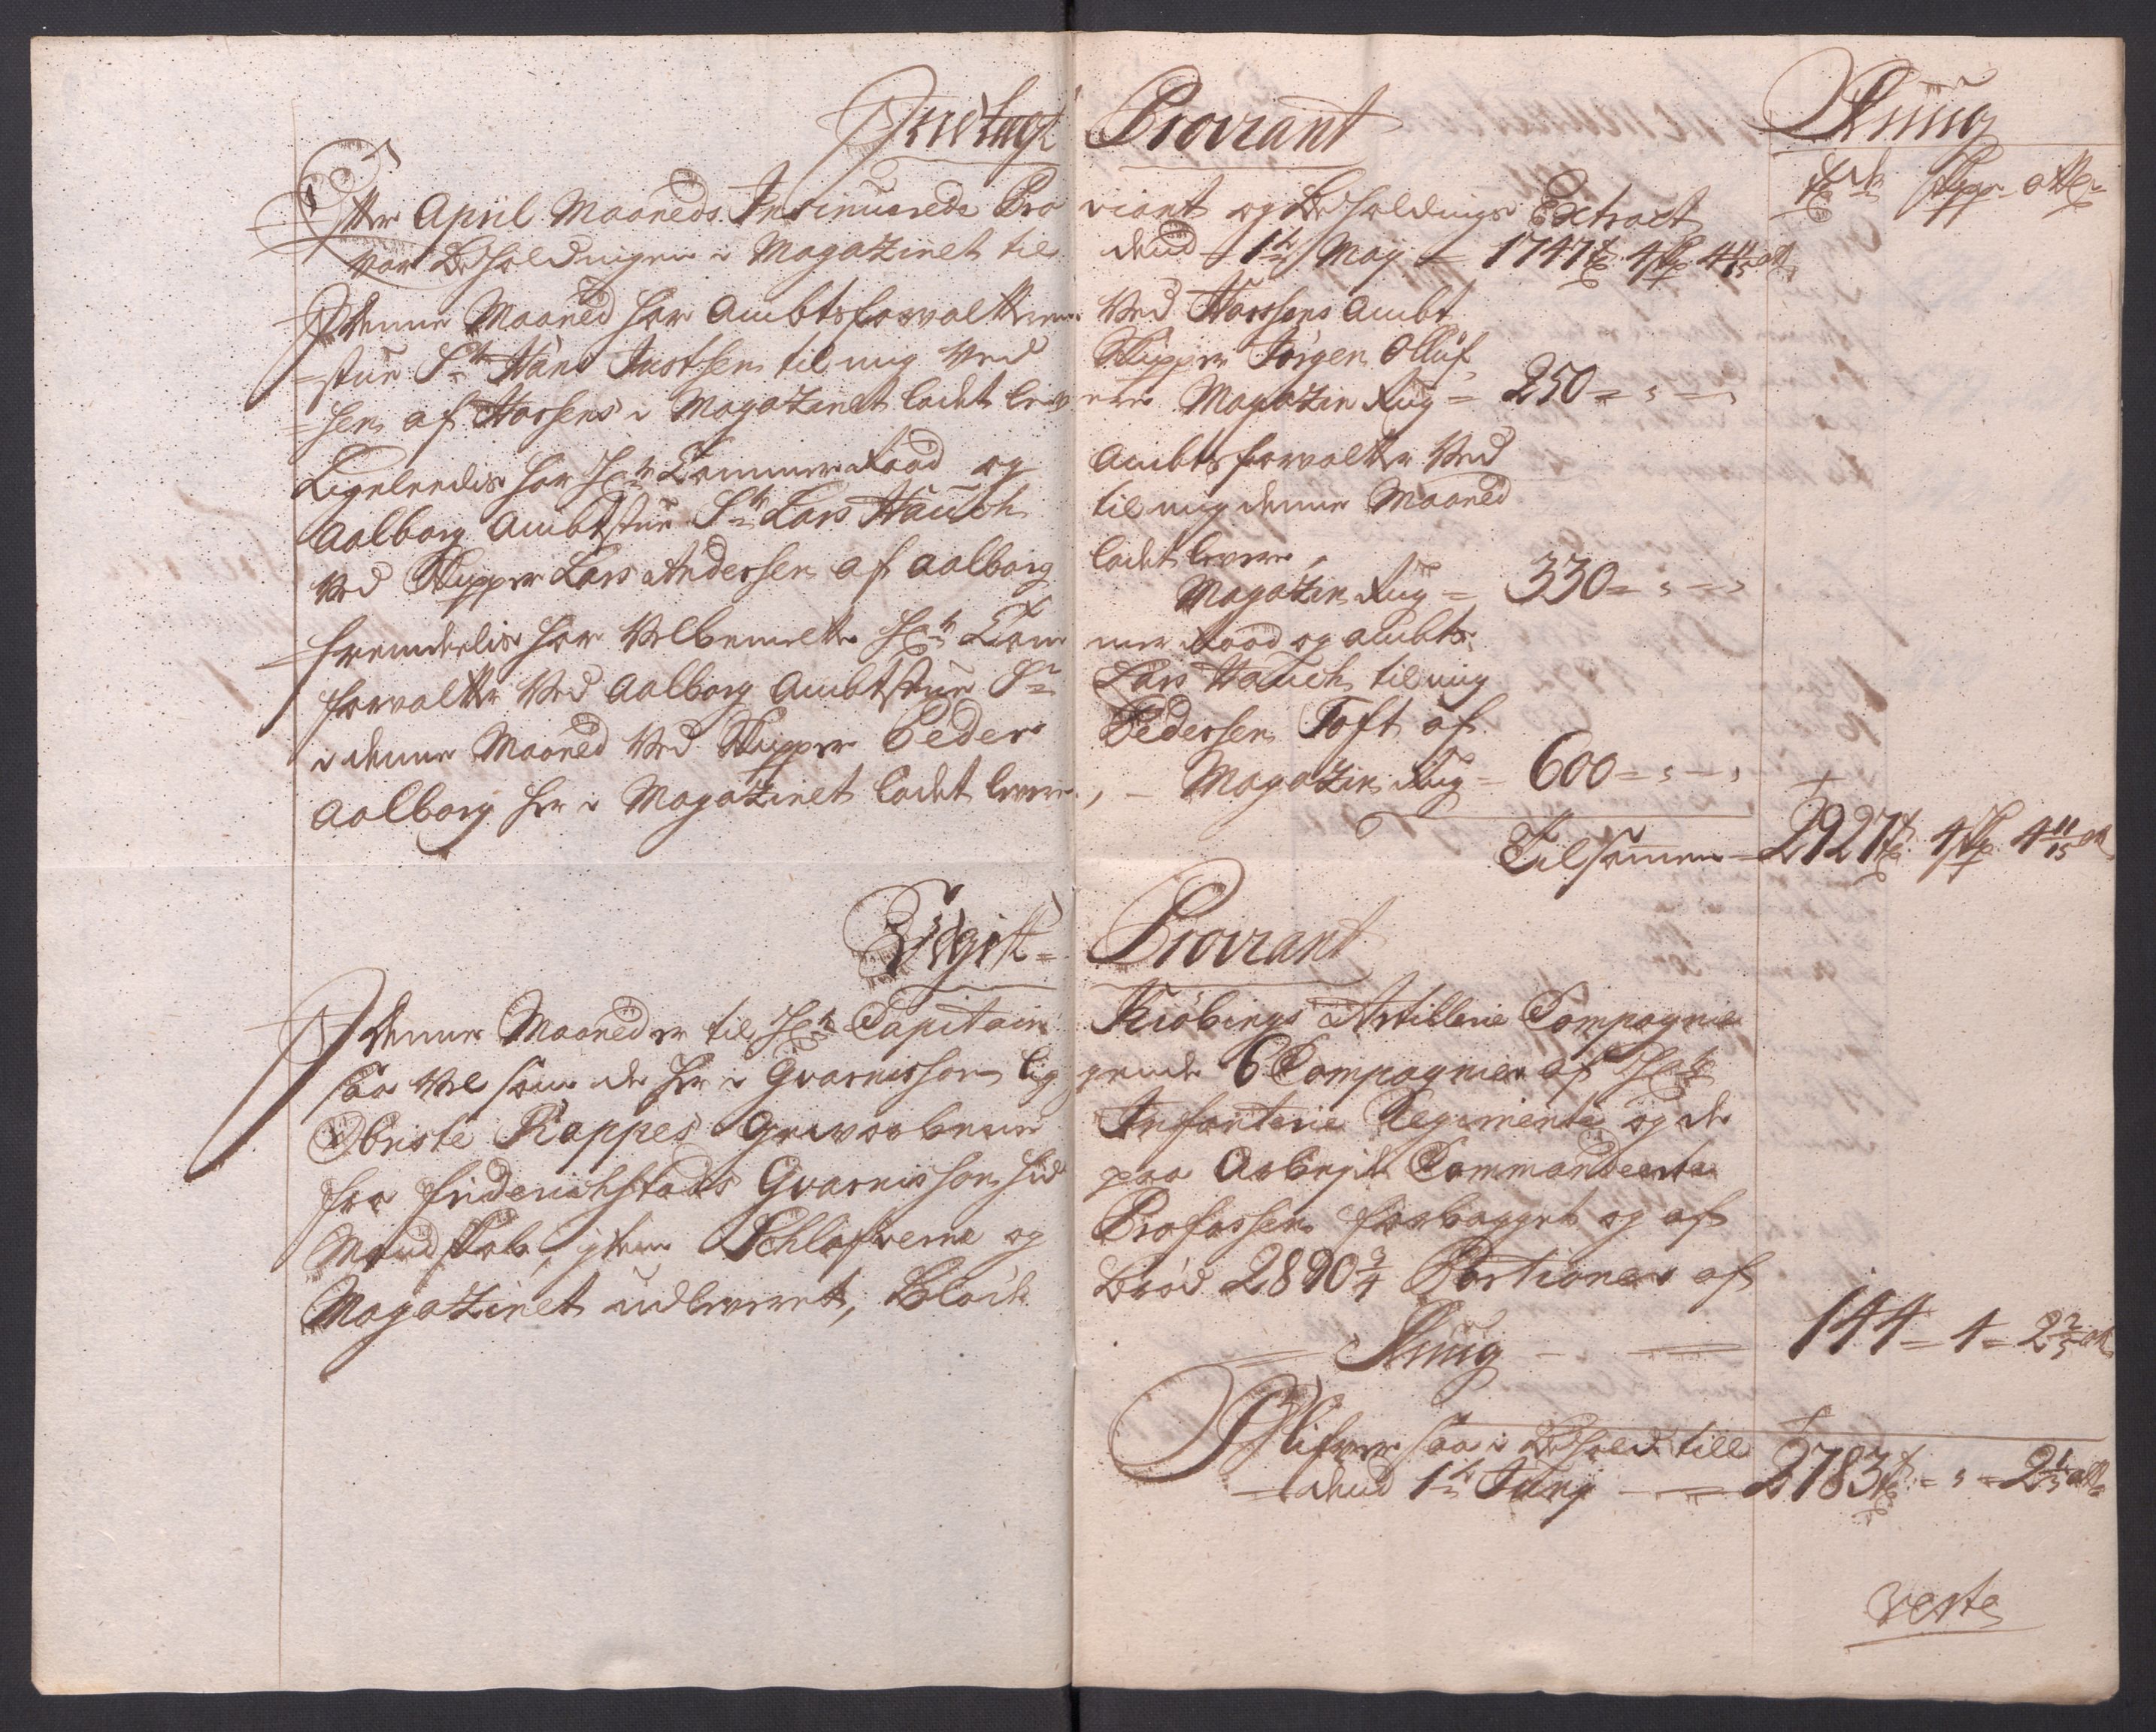 Indtægt Proviant Ruug
Tdr Skpr otk
Efter April Maaneds Insinuerede Proviant og Beholdnings Extract
var Beholdningen i Magazinet til dend 1te May = 1747 t 4 Skp 4 11/15 otk
I denne Maaned har Ambtsforvalteren Ved Horsens Ambt
=stue Sr Hans Justsen til mig Ved Skipper Jörgen Olluf
=sen af Horsens i Magazinet ladet levere Magazin Rug = 250 = " = "
Ligeleedis har Hr Cammer Raad og Ambtsforvalter Ved
Aalborg Ambtstue Sr Lars Hauch til mig denne Maaned
Ved Skipper Lars Andersen af Aalborg ladet levere,
Magazin Rug = 330 = " = "
fremdeelis har Velbemelte Hr Cammer Raad og Ambts
forvalter Ved Aalborg Ambtstue Sr Lars Hauch til mig
i denne Maaned Ved Skipper Peder Pedersen Toft af
Aalborg her i Magazinet ladet levere, - Magazin Rug = 600 = " = "
Tilsammen = 2927 t 4 Skp 4 11/15 otk
Udgift = Proviant
I denne Maaned er til Hr Capitain Kiöbings Artillerie Compagnie
saa Vel som de her i Gvarnisson liggende 6 Compagnier af Hr
Obriste Rappes Gevorbene Infanterie Regimente og de
fra Friderichstads Gvarnisson hid paa Arbejde Commanderte
Mandskab, jtem Schlafverne og Profossen forbagget og af
Magazinet udleveret, Bröd 2890 3/4 Portioner af
Ruug - = 144 = 4 = 2 2/5 otk
Blifver saa i Behold till
dend 1te Junj = 2783 t = " = 2 1/3 otk
verte